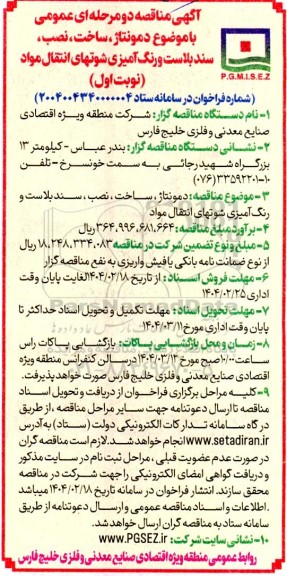 آگهی مناقصه دو مرحله ای عمومی
با موضوع دمونتاژ ، ساخت ، نصب ،
سند بلاست و رنگ آمیزی شوتهای انتقال مواد
(نوبت اول)
P.G.M.I.S.E.Z
(شماره فراخوان در سامانه ستاد ۲۰۰۴۰۰۴۳۴۰۰۰۰۰۰۴)
۱- نام دستگاه مناقصه گزار: شرکت منطقه ویژه اقتصادی
صنایع معدنی و فلزی خلیج فارس
۲- نشانی دستگاه مناقصه گزار: بندر عباس - کیلومتر ۱۳
بزرگراه شهید رجائی به سمت خونسرخ - تلفن
۱۰-۳۳۵۹۲۲۰۱ (۰۷۶)
۳- موضوع مناقصه: دمونتاژ ، ساخت ، نصب ، سندبلاست و
رنگ آمیزی شوتهای انتقال مواد
۴- برآورد مبلغ مناقصه: ۳۶۴،۹۹۶،۶۸۱،۶۶۴ ریال
۵- مبلغ و نوع تضمین شرکت در مناقصه: ۱۸،۲۴۸،۳۳۴،۰۸۳ ریال
از نوع ضمانت نامه بانکی یا فیش واریزی به نفع مناقصه گزار
۶- مهلت فروش اسناد : از تاریخ ۱۴۰۴/۰۲/۱۸ لغایت پایان وقت
اداری ۱۴۰۴/۰۲/۲۵
۷- مهلت تحویل اسناد: مهلت تکمیل و تحویل اسناد حداکثر تا
پایان وقت اداری مورخ ۱۴۰۴/۰۳/۱۱
۸- زمان و محل بازگشایی پاکات: بازگشایی پاکات راس
ساعت ۱۰/۰۰ صبح مورخ ۱۴۰۴/۰۳/۱۲ در سالن کنفرانس منطقه ویژه
اقتصادی صنایع معدنی و فلزی خلیج فارس صورت خواهد پذیرفت.
۹- کلیه مراحل برگزاری فراخوان از دریافت و تحویل اسناد
مناقصه تا ارسال دعوتنامه جهت سایر مراحل مناقصه ، از طریق
در گاه سامانه تدارکات الکترونیکی دولت (ستاد) به آدرس
www.setadiran.ir انجام خواهد شد. لازم است مناقصه گران
در صورت عدم عضویت قبلی ، مراحل ثبت نام در سایت مذکور
و دریافت گواهی امضای الکترونیکی را جهت شرکت در مناقصه
محقق سازند. انتشار فراخوان در سامانه تاریخ ۱۴۰۴/۰۲/۱۸ میباشد
. اطلاعات و اسناد مناقصه عمومی و ارسال دعوتنامه از طریق
سامانه ستاد به مناقصه گران ارسال خواهد شد.
۱۰- نشانی سایت شرکت: www.PGSEZ.ir
روابط عمومی منطقه ویژه اقتصادی صنایع معدنی و فلزی خلیج فارس